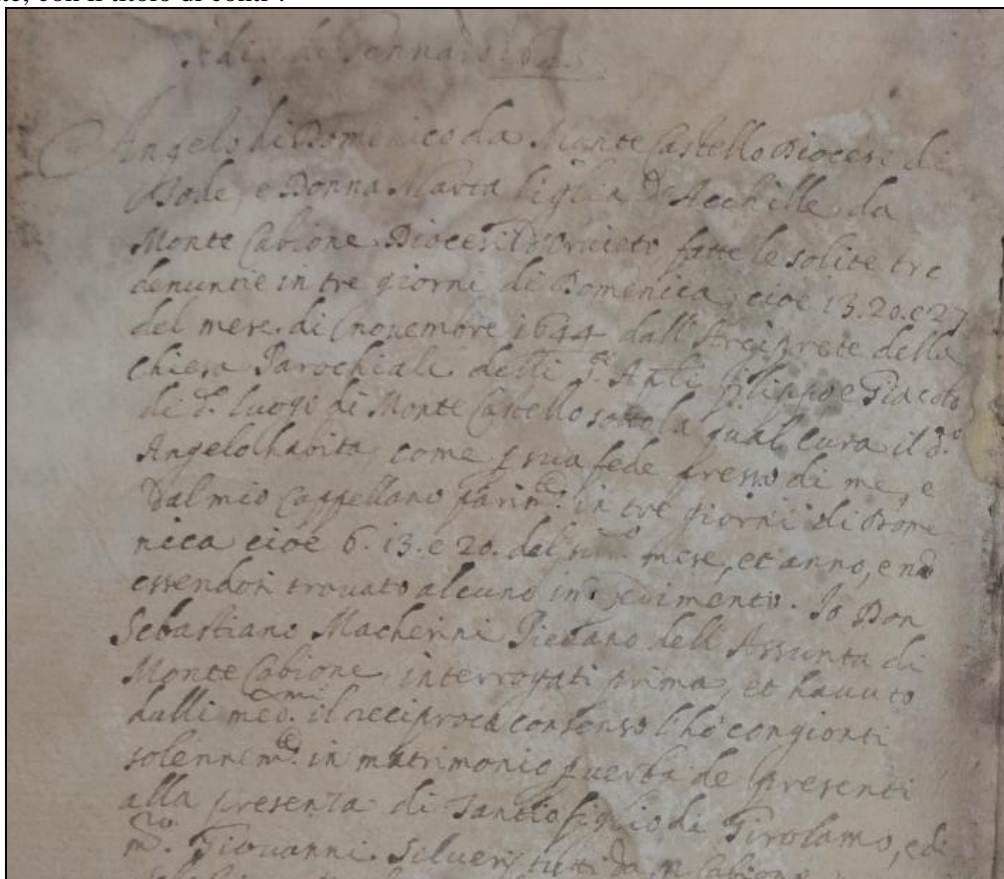 con il titolo di conti".
Adi di Gennaro
Angelo di Domenico da Monte Castello Diocesi di
Tode, e Donna Marta figlia d'Acchille da
Monte Cabione Diocesi d'Orvieto fatte le solite tre
denuntie in tre giorni di Domenica, cioe 13. 20. e 27
del mese di novembre 1644 dall'Arciprete della
Chiesa Parochiale delli Sti. Apli Filippo e Giacomo
di d. luogo di Monte Castello sotto la qual cura il do.
Angelo habita, come p sua fede presso di me, e
Dal mio Cappellano parimte. in tre giorni di Dome
nica cioe 6. 13. e 20. del mese, et anno, e no
essendosi trovato alcuno impedimento. Io Don
Sebastiano Macherini Pievano dell'Assunta di
Monte Cabione, interrogati prima, et havuto
dalli medmi. il reciproco consenso l'ho congionti
solennemte. in matrimonio p verba de presenti
alla presenza di Santio figlio di Girolamo, e di
Mo. Giovanni Silveri tutti da M. Cabione